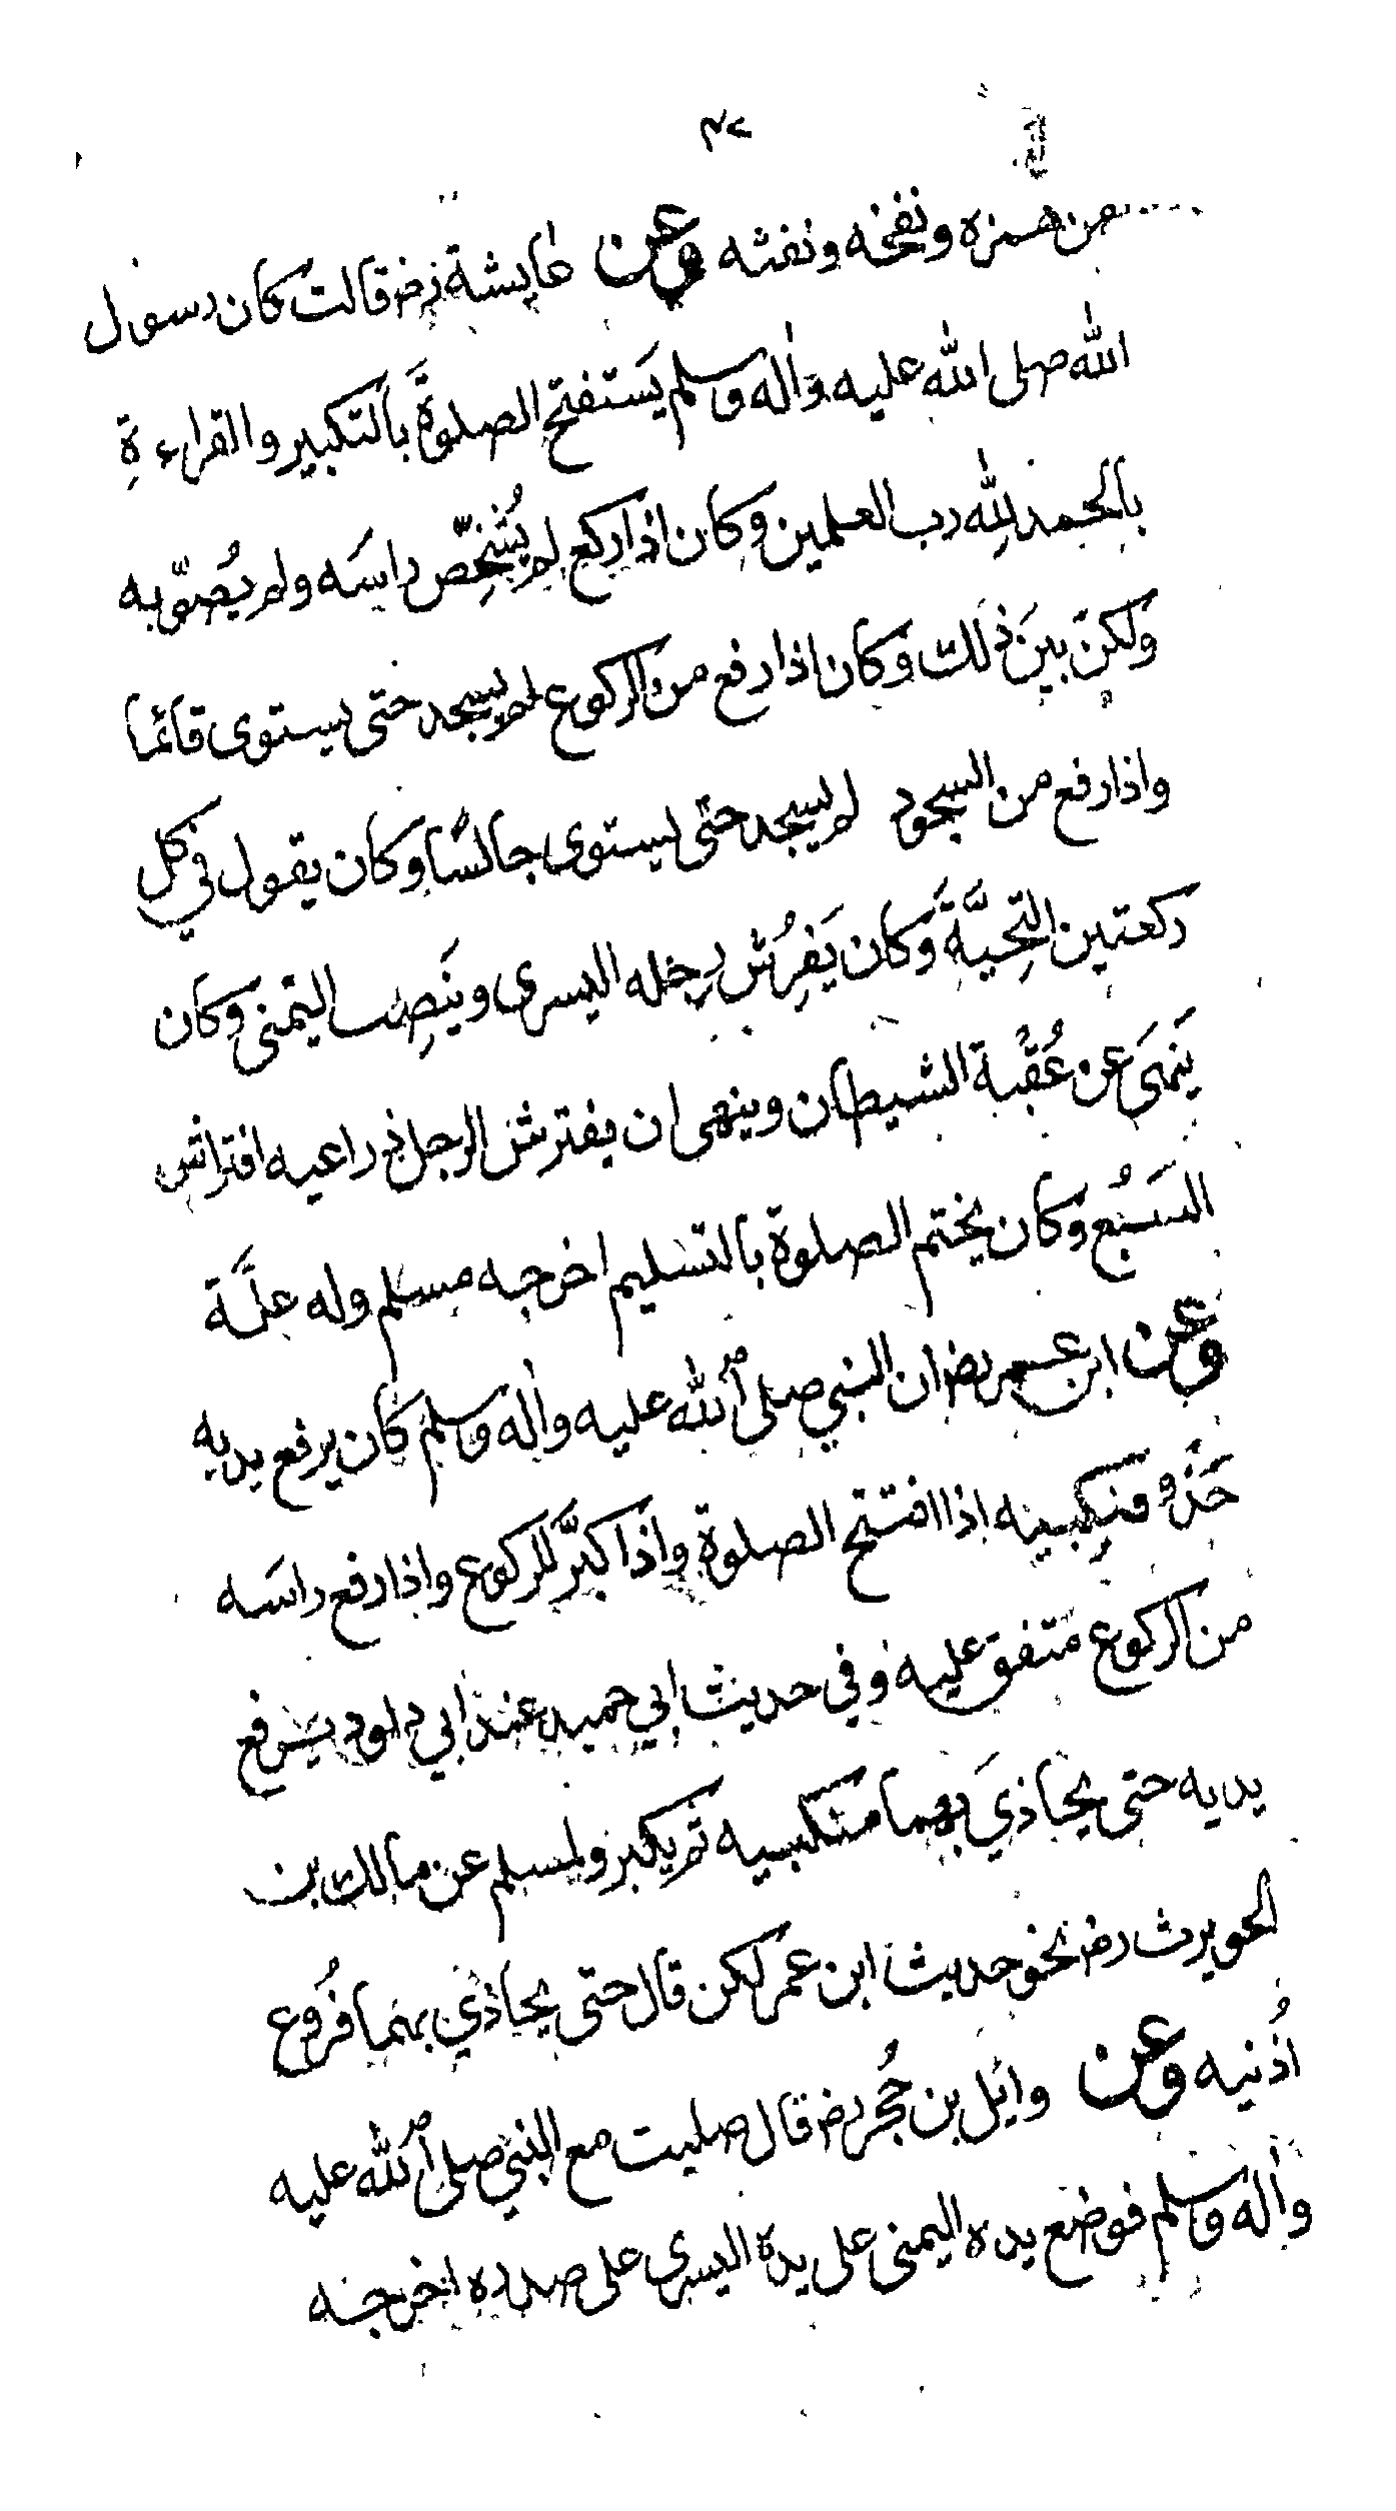 من همزه ونفخه ونفثه وعن عايشة رض قالت كان رسول
الله صلى الله عليه واله وسلم يَستفتح الصلوةَ بالتكبير والقراءةِ
بالحمد لِلّٰه رب العلمين وكان اذا ركع لم يُشخِّص راسَه ولم يُصوّبه
ولكن بينَ ذلك وكان اذا رفع من الركوع لم يسجد حتى يستوى قائما
واذا رفع من السجود لم يسجد حتى يستوى جالسًا وكان يقول في كل
ركعتين التحِيَّةَ وكان يَفرِش رجله اليسرى وينَصِب اليمنى وكان
يَنهىَ عن عُقْبة الشيطان وينهى ان يفترش الرجل ذراعيه افتراش
السَبُع وكان يختم الصلوة بالتسليم اخرجه مسلم وله علَّة
وعن ابن عمر رض ان النبي صلى الله عليه واله وسلم كان يرفع يديه
حَذْو مَنكِبيه اذا افتتح الصلوة واذا كبَّر للركوع واذا رفع راسَه
من الركوع متفق عليه وفي حديث ابي حميد عند ابي داود يرفع
يديه حتى يحاذيَ بهما منكبيه ثم يكبر ولمسلم عن مالك بن
الحويرث رض نحو حديث ابن عمر لكن قال حتى يحاذي بهما فُروع
اُذنيه وعن وايل بن حُجر رض قال صليت مع النبي صلى الله عليه
واله وسلم فوضع يده اليمنى على يده اليسرى على صدره اخرجه